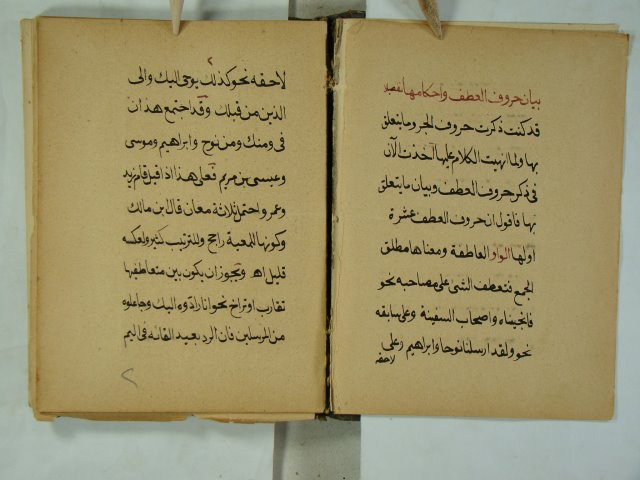 بيان حروف العطف واحكامها مفصلا
قد كنت ذكرت حروف الجر وما يتعلق
بها ولما انهيت الكلام عليها اخذت الآن
فى ذكر حروف العطف وبيان ما يتعلق
بها فاقول ان حروف العطف عشرة
اولها الواو العاطفة ومعناها مطلق
الجمع فتعطف الشئ على مصاحبه نحو
فانجيناه واصحاب السفينة وعلى سابقه
نحو ولقد ارسلنا نوحا وابراهيم وعلى
لاحقه
لاحقه نحو كذلك يوحى اليك والى
الذين من قبلك وقد اجتمع هذان
فى ومنك ومن نوح وابراهيم وموسى
وعيسى بن مريم فعلى هذا اذا قيل قام زيد
وعمرو احتمل ثلاثة معان قال بن مالك
وكونها للمعية راجح وللترتيب كثير ولعكسه
قليل اه ويجوز ان يكون بين متعاطفيها
تقارب او تراخ نحو انا رادوه اليك وجاعلوه
من المرسلين فان الرد بعيد القائه فى اليم
٢